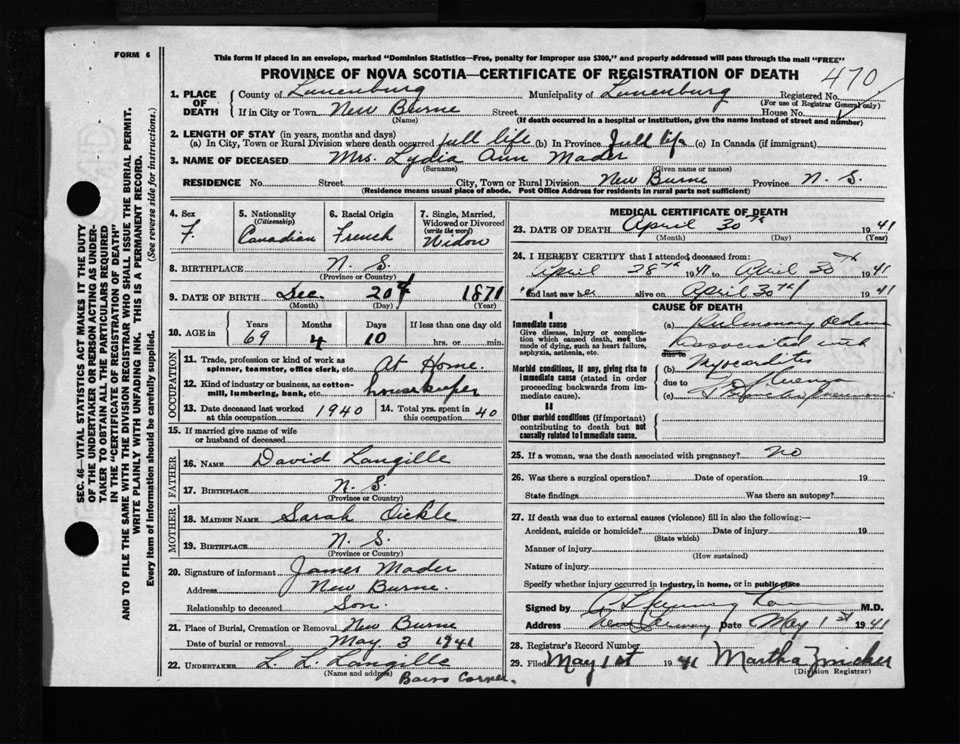 FORM 6
This form if placed in an envelope, marked "Dominion Statistics—Free, penalty for improper use $300," and properly addressed will pass through the mail "FREE"
PROVINCE OF NOVA SCOTIA—CERTIFICATE OF REGISTRATION OF DEATH
470
1. PLACE OF DEATH
County of Lunenburg Municipality of Lunenburg Registered No.
(For use of Registrar General only)
If in City or Town New Burne Street House No.
(Name) (If death occurred in a hospital or institution, give the name instead of street and number)
2. LENGTH OF STAY (in years, months and days)
(a) In City, Town or Rural Division where death occurred full life (b) In Province full life (c) In Canada (if immigrant)
3. NAME OF DECEASED Mrs. Lydia Ann Mader
(Surname) (Given name or names)
RESIDENCE No. Street City, Town or Rural Division New Burne Province N. S.
(Residence means usual place of abode. Post Office Address for residents in rural parts not sufficient)
4. Sex F.
5. Nationality (Citizenship) Canadian
6. Racial Origin French
7. Single, Married, Widowed or Divorced (write the word) Widow
8. BIRTHPLACE N. S.
(Province or Country)
9. DATE OF BIRTH Dec. 20th 1871
(Month) (Day) (Year)
10. AGE in Years 69 Months 4 Days 10 If less than one day old hrs. or min.
OCCUPATION
11. Trade, profession or kind of work as spinner, teamster, office clerk, etc. At Home.
12. Kind of industry or business, as cotton-mill, lumbering, bank, etc. housekeeper
13. Date deceased last worked at this occupation 1940
14. Total yrs. spent in this occupation 40
15. If married give name of wife or husband of deceased
FATHER
16. NAME David Langille
17. BIRTHPLACE N. S.
(Province or Country)
MOTHER
18. MAIDEN NAME Sarah Oickle
19. BIRTHPLACE N. S.
(Province or Country)
20. Signature of informant James Mader
Address New Burne
Relationship to deceased Son.
21. Place of Burial, Cremation or Removal New Burne
Date of burial or removal May 3 1941
22. UNDERTAKER L. L. Langille
(Name and address) Barss Corner.
MEDICAL CERTIFICATE OF DEATH
23. DATE OF DEATH April 30th 1941
(Month) (Day) (Year)
24. I HEREBY CERTIFY that I attended deceased from:
April 28th 1941 to April 30th 1941
and last saw her alive on April 30th 1941
CAUSE OF DEATH
I
Immediate cause
Give disease, injury or complication which caused death, not the mode of dying, such as heart failure, asphyxia, asthenia, etc.
(a) Pulmonary edema
Associated with
due to
Morbid conditions, if any, giving rise to immediate cause (stated in order proceeding backwards from immediate cause).
(b) Myocarditis
due to
(c)
II
Other morbid conditions (if important) contributing to death but not causally related to immediate cause.
25. If a woman, was the death associated with pregnancy? No
26. Was there a surgical operation? Date of operation 19
State findings Was there an autopsy?
27. If death was due to external causes (violence) fill in also the following:—
Accident, suicide or homicide? Date of injury 19
(State which)
Manner of injury
(How sustained)
Nature of injury
Specify whether injury occurred in industry, in home, or in public place
Signed by M.D.
Address New Germany Date May 1st 1941
28. Registrar's Record Number
29. Filed May 1st 1941 Martha Zwicker
(Division Registrar)
SEC. 46—VITAL STATISTICS ACT MAKES IT THE DUTY
OF THE UNDERTAKER OR PERSON ACTING AS UNDER-
TAKER TO OBTAIN ALL THE PARTICULARS REQUIRED
IN THE "CERTIFICATE OF REGISTRATION OF DEATH"
AND TO FILE THE SAME WITH THE DIVISION REGISTRAR WHO SHALL ISSUE THE BURIAL PERMIT.
WRITE PLAINLY WITH UNFADING INK. THIS IS A PERMANENT RECORD.
Every item of information should be carefully supplied. (See reverse side for instructions.)